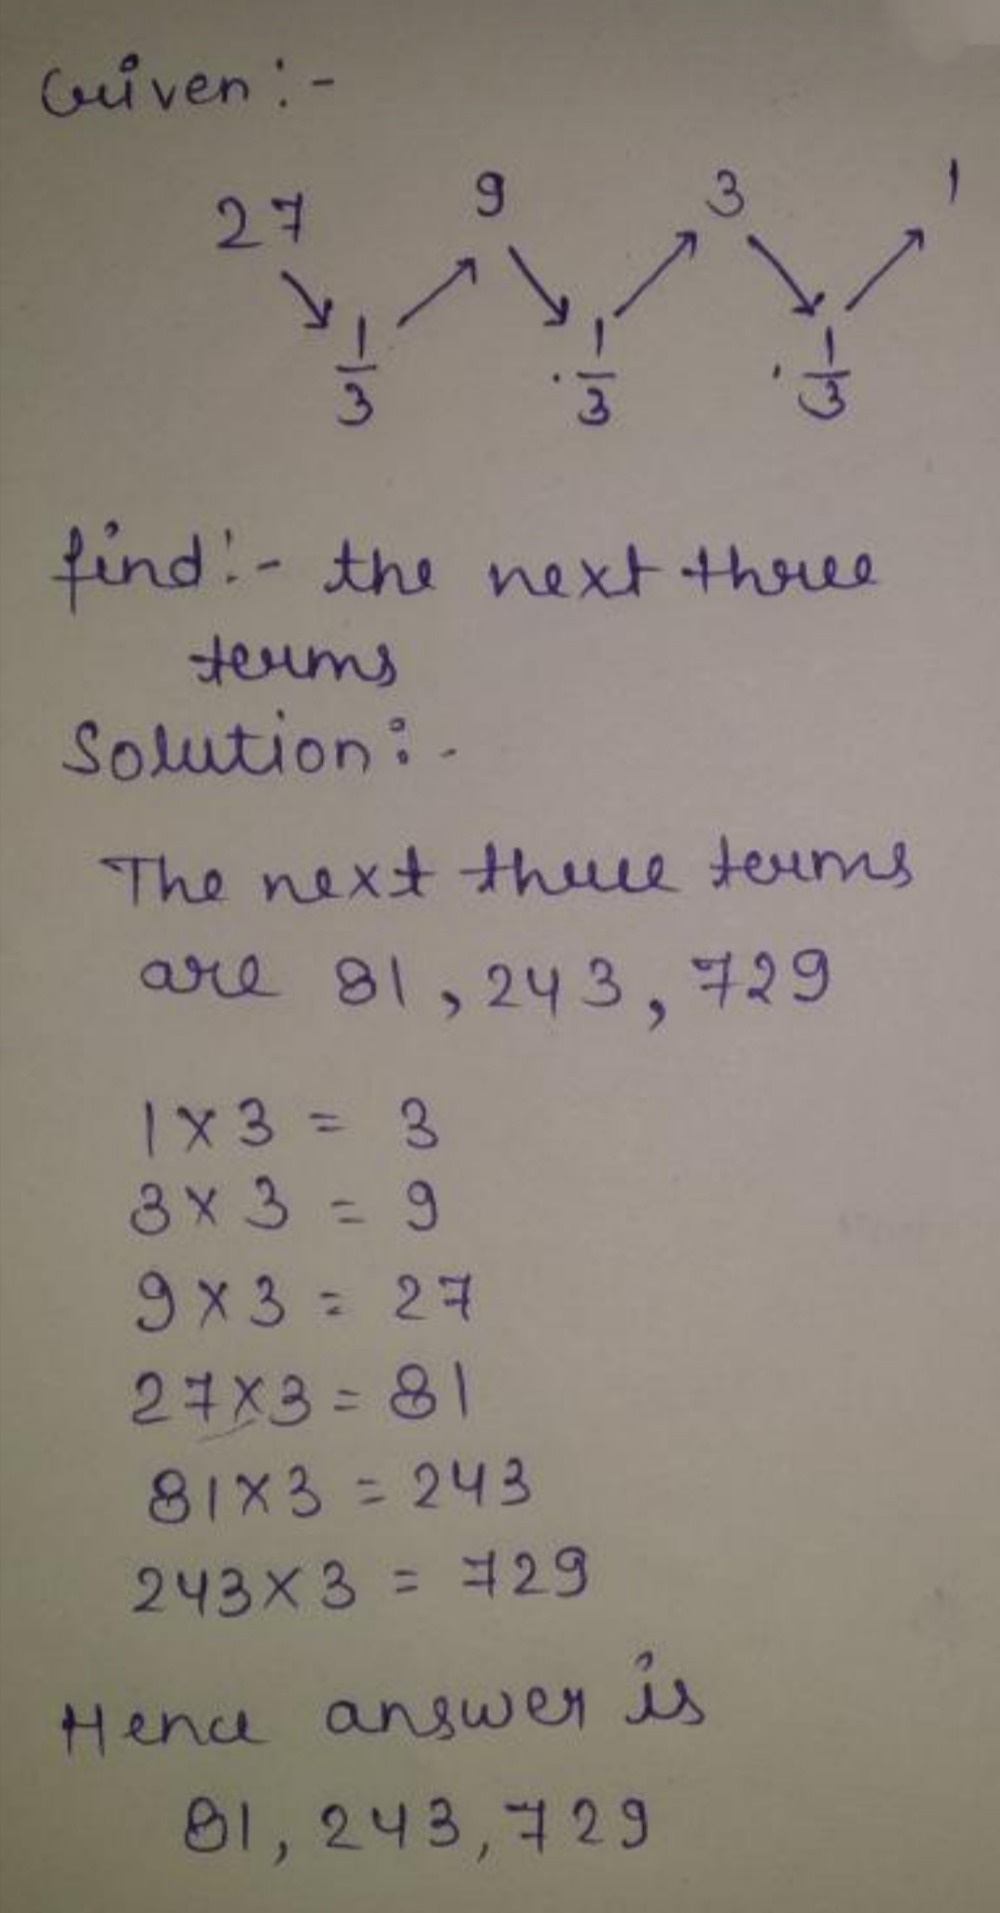 Given :-
27 9 3 1
1/3 · 1/3 · 1/3
find :- the next three
terms
Solution :-
The next three terms
are 81, 243, 729
1 × 3 = 3
3 × 3 = 9
9 × 3 = 27
27 × 3 = 81
81 × 3 = 243
243 × 3 = 729
Hence answer is
81, 243, 729